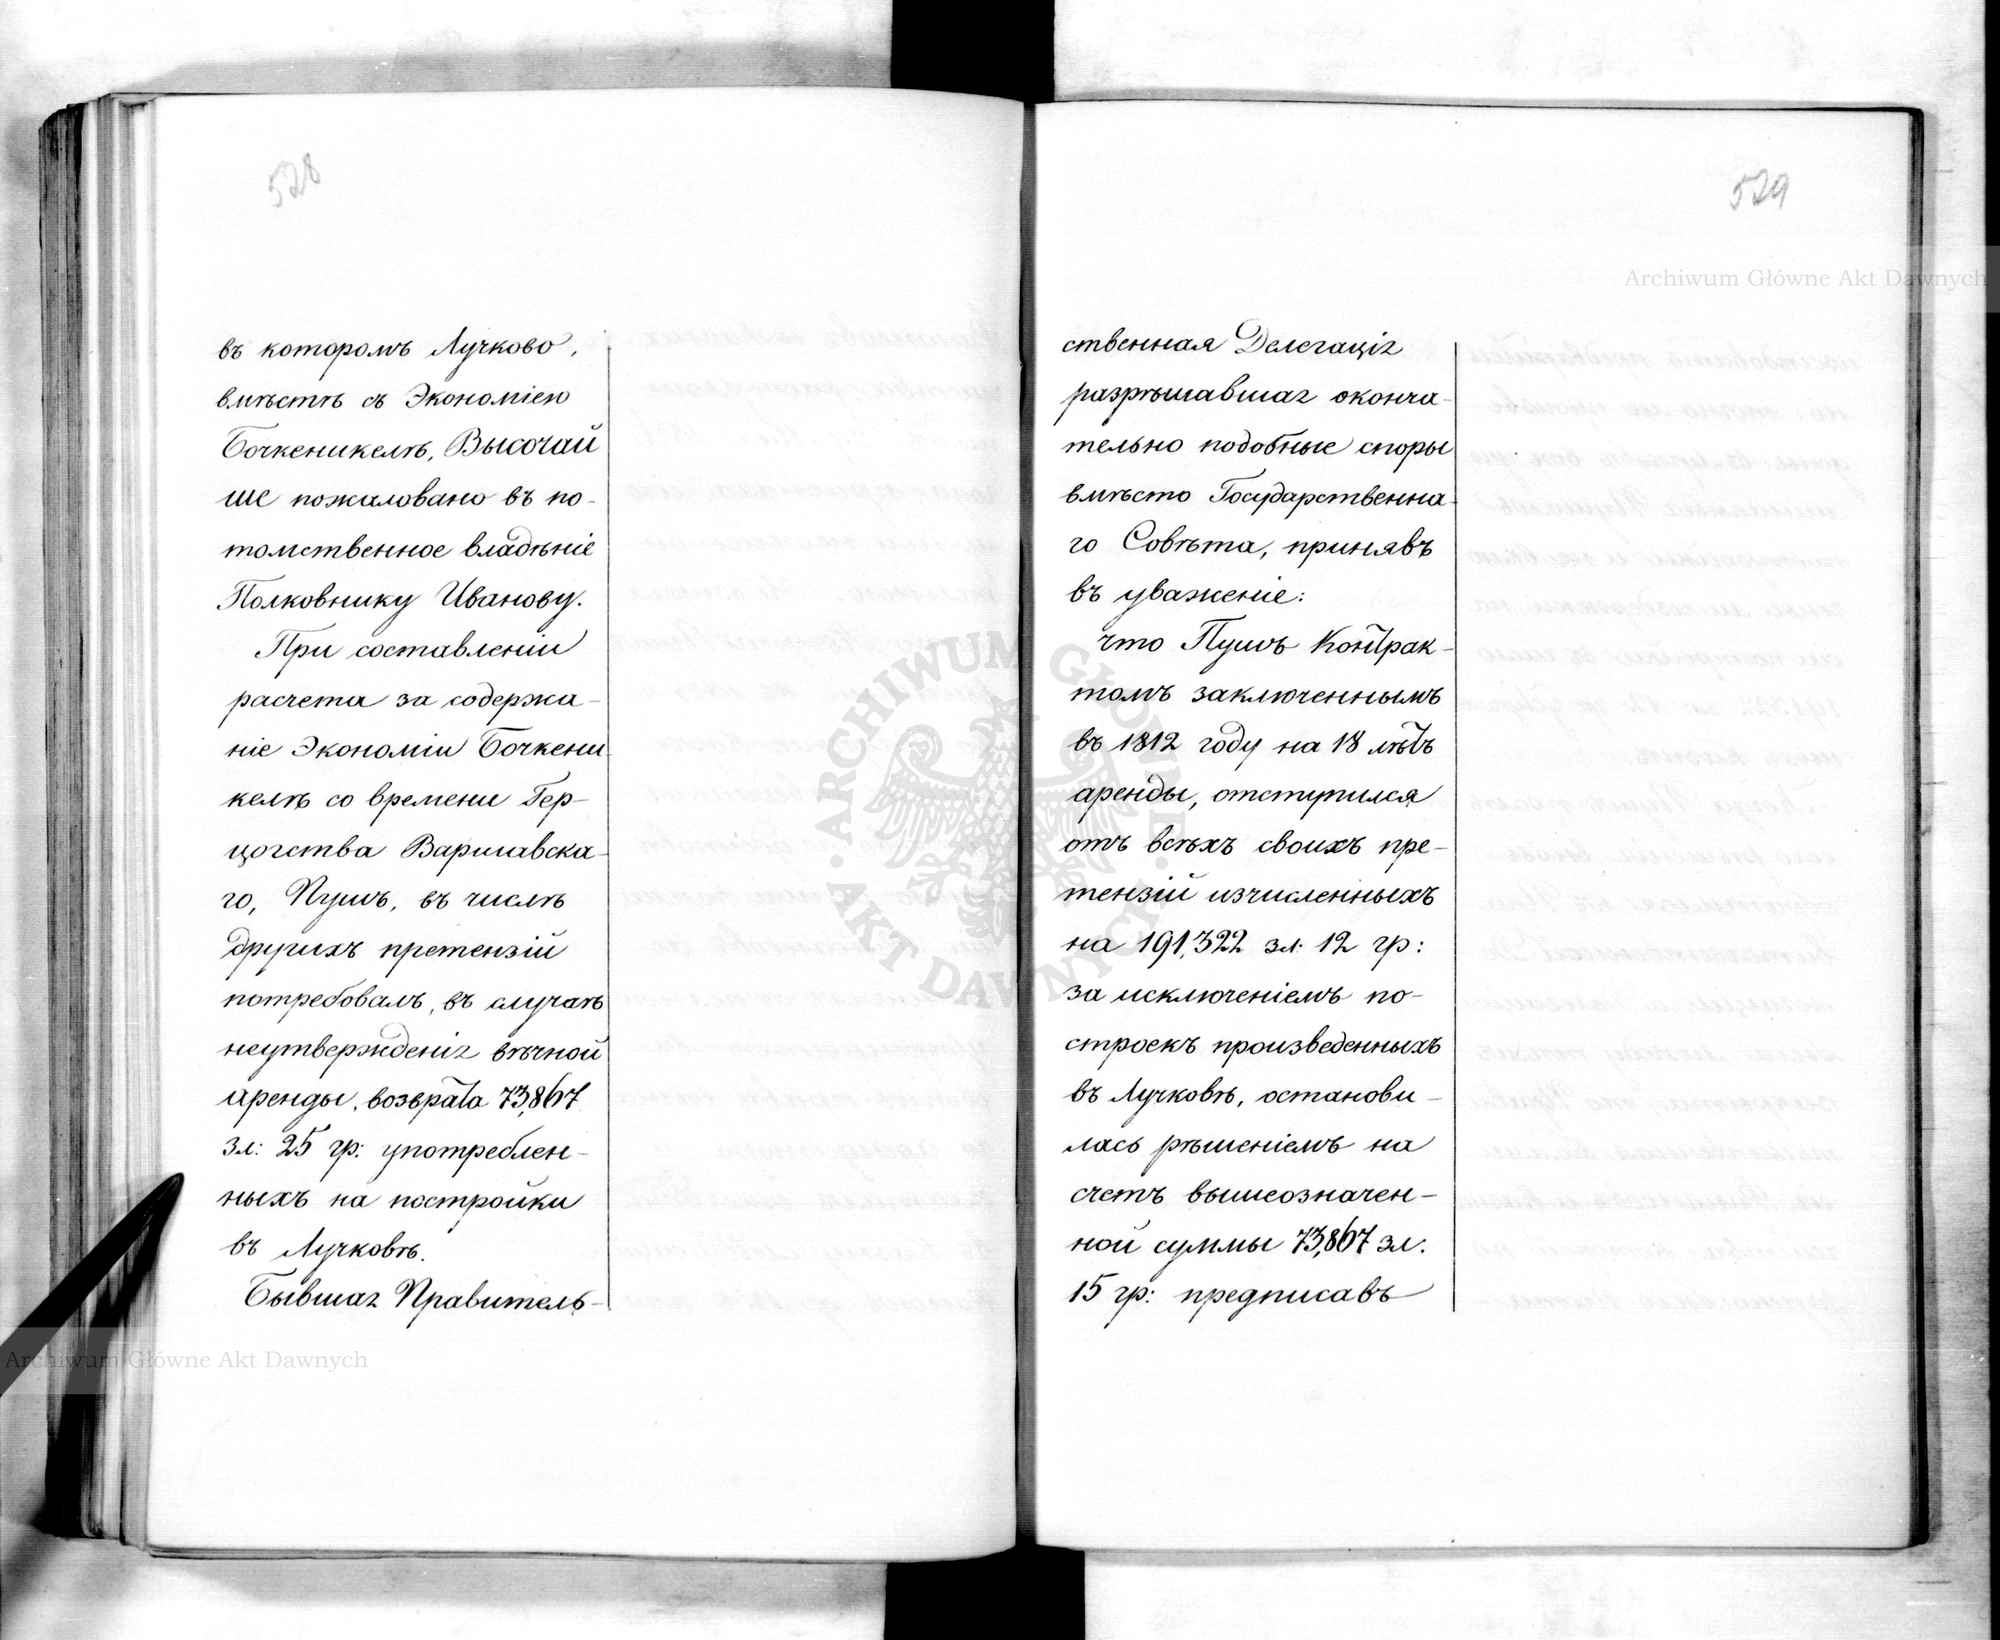 528
въ которомъ Лучково,
вмѣстѣ съ Экономіею
Бочкеникелъ, Высочай
ше пожаловано въ по-
томственное владѣніе
Полковнику Иванову.
При составленіи
расчета за содержа-
ніе Экономіи Бочкени-
келъ со времени Гер-
цогства Варшавска-
го, Пушъ, въ числѣ
другихъ претензій
потребовалъ, въ случаѣ
неутвержденія вѣчной
аренды, возврата 73,867
зл: 25 гр: употреблен-
ныхъ на постройки
въ Лучковѣ.
Бывшая Правитель-
529
ственная Делегація
разрѣшавшая оконча-
тельно подобные споры
вмѣсто Государственна-
го Совѣта, принявъ
въ уваженіе:
что Пушъ Контрак-
томъ заключеннымъ
въ 1812 году на 18 лѣтъ
аренды, отступился
отъ всѣхъ своихъ пре-
тензій изчисленныхъ
на 191,322 зл: 12 гр:
за исключеніемъ по-
строекъ произведенныхъ
въ Лучковѣ, останови-
лась рѣшеніемъ на
счетъ вышеозначен-
ной суммы 73,867 зл:
15 гр: предписавъ
Archiwum Główne Akt Dawnych
Archiwum Główne Akt Dawnych
ARCHIWUM GŁÓWNE AKT DAWNYCH